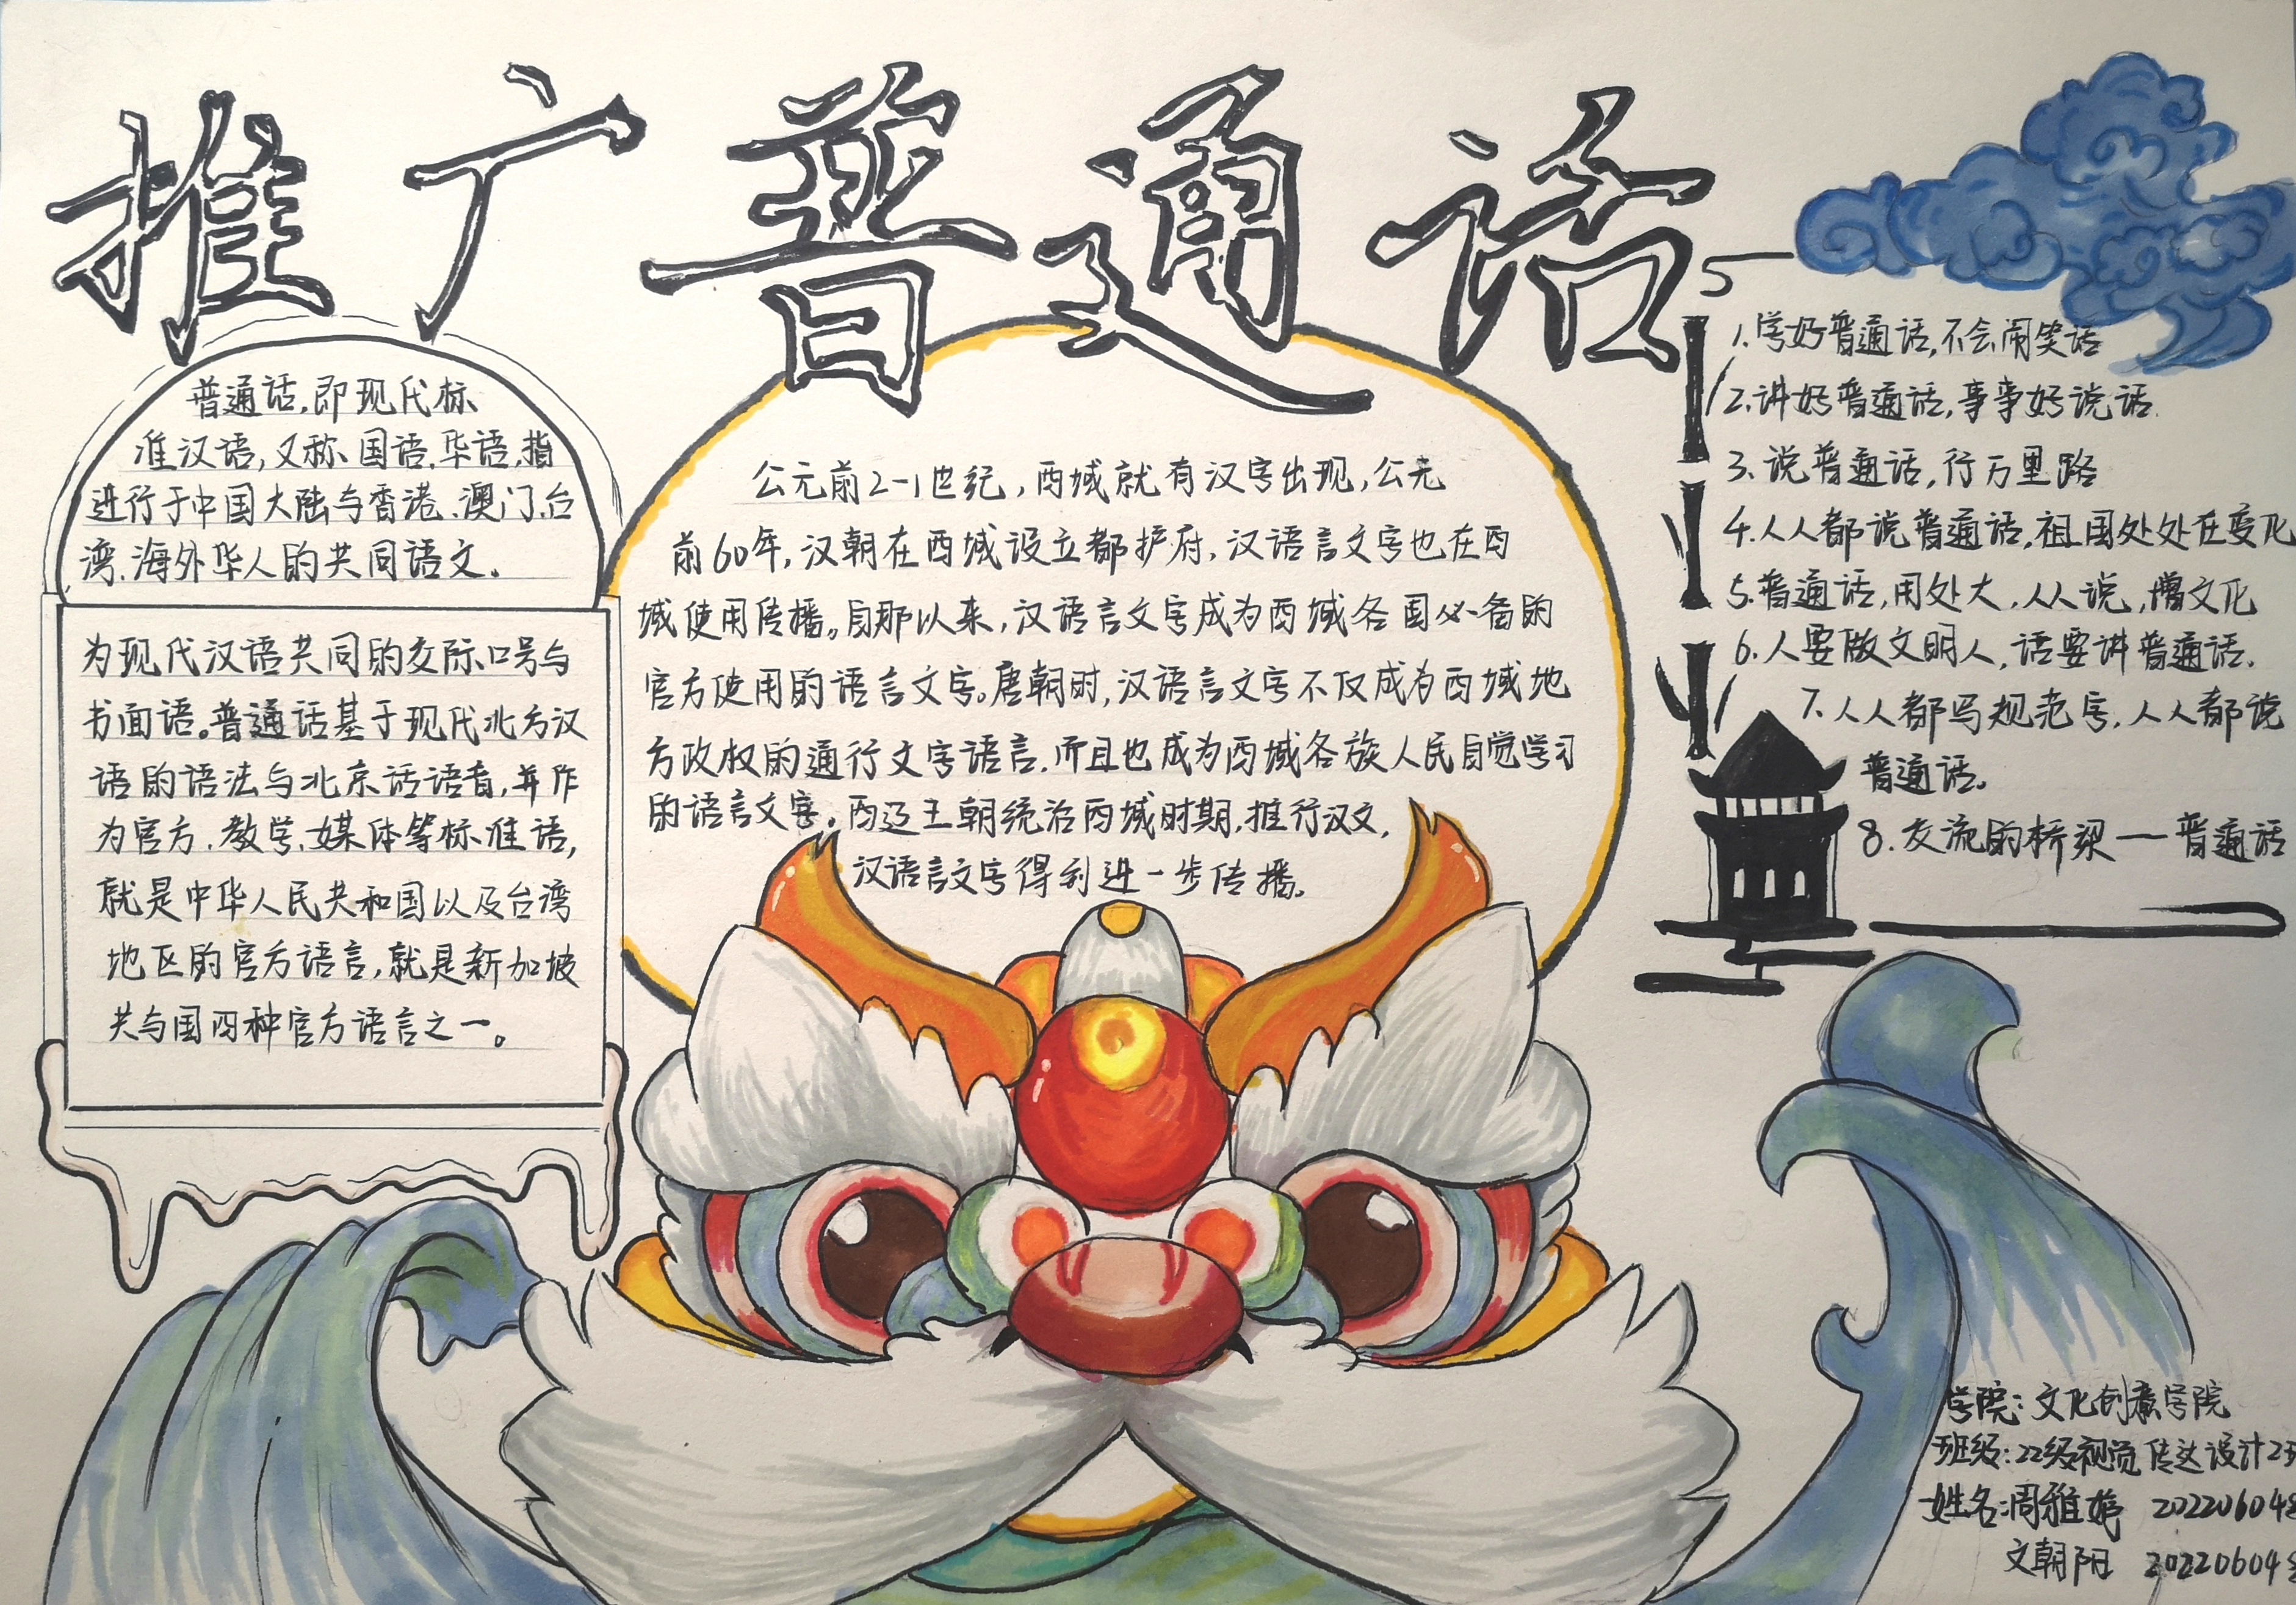 推广普通话
普通话,即现代标
准汉语,又称、国语、华语,指
进行于中国大陆与香港、澳门、台
湾、海外华人的共同语文。
为现代汉语共同的交际口号与
书面语。普通话基于现代北方汉
语的语法与北京话语音,并作
为官方、教学、媒体等标准语,
就是中华人民共和国以及台湾
地区的官方语言,就是新加坡
共与国四种官方语言之一。
公元前2-1世纪,西域就有汉字出现,公元
前60年,汉朝在西域设立都护府,汉语言文字也在西
域使用传播。自那以来,汉语言文字成为西域各国必备的
官方使用的语言文字。唐朝时,汉语言文字不仅成为西域地
方政权的通行文字语言,而且也成为西域各族人民自觉学习
的语言文字。西辽王朝统治西域时期,推行汉文,
汉语言文字得到进一步传播。
1.学好普通话,不会闹笑话
2.讲好普通话,事事好说话.
3.说普通话,行万里路
4.人人都说普通话,祖国处处在变化
5.普通话,用处大,人人说,增文化
6.人要做文明人,话要讲普通话.
7.人人都写规范字,人人都说
普通话。
8.交流的桥梁一普通话
学院:文化创意学院
班级:22级视觉传达设计2班
姓名:周雅婷 202206048
文朝阳 20220604